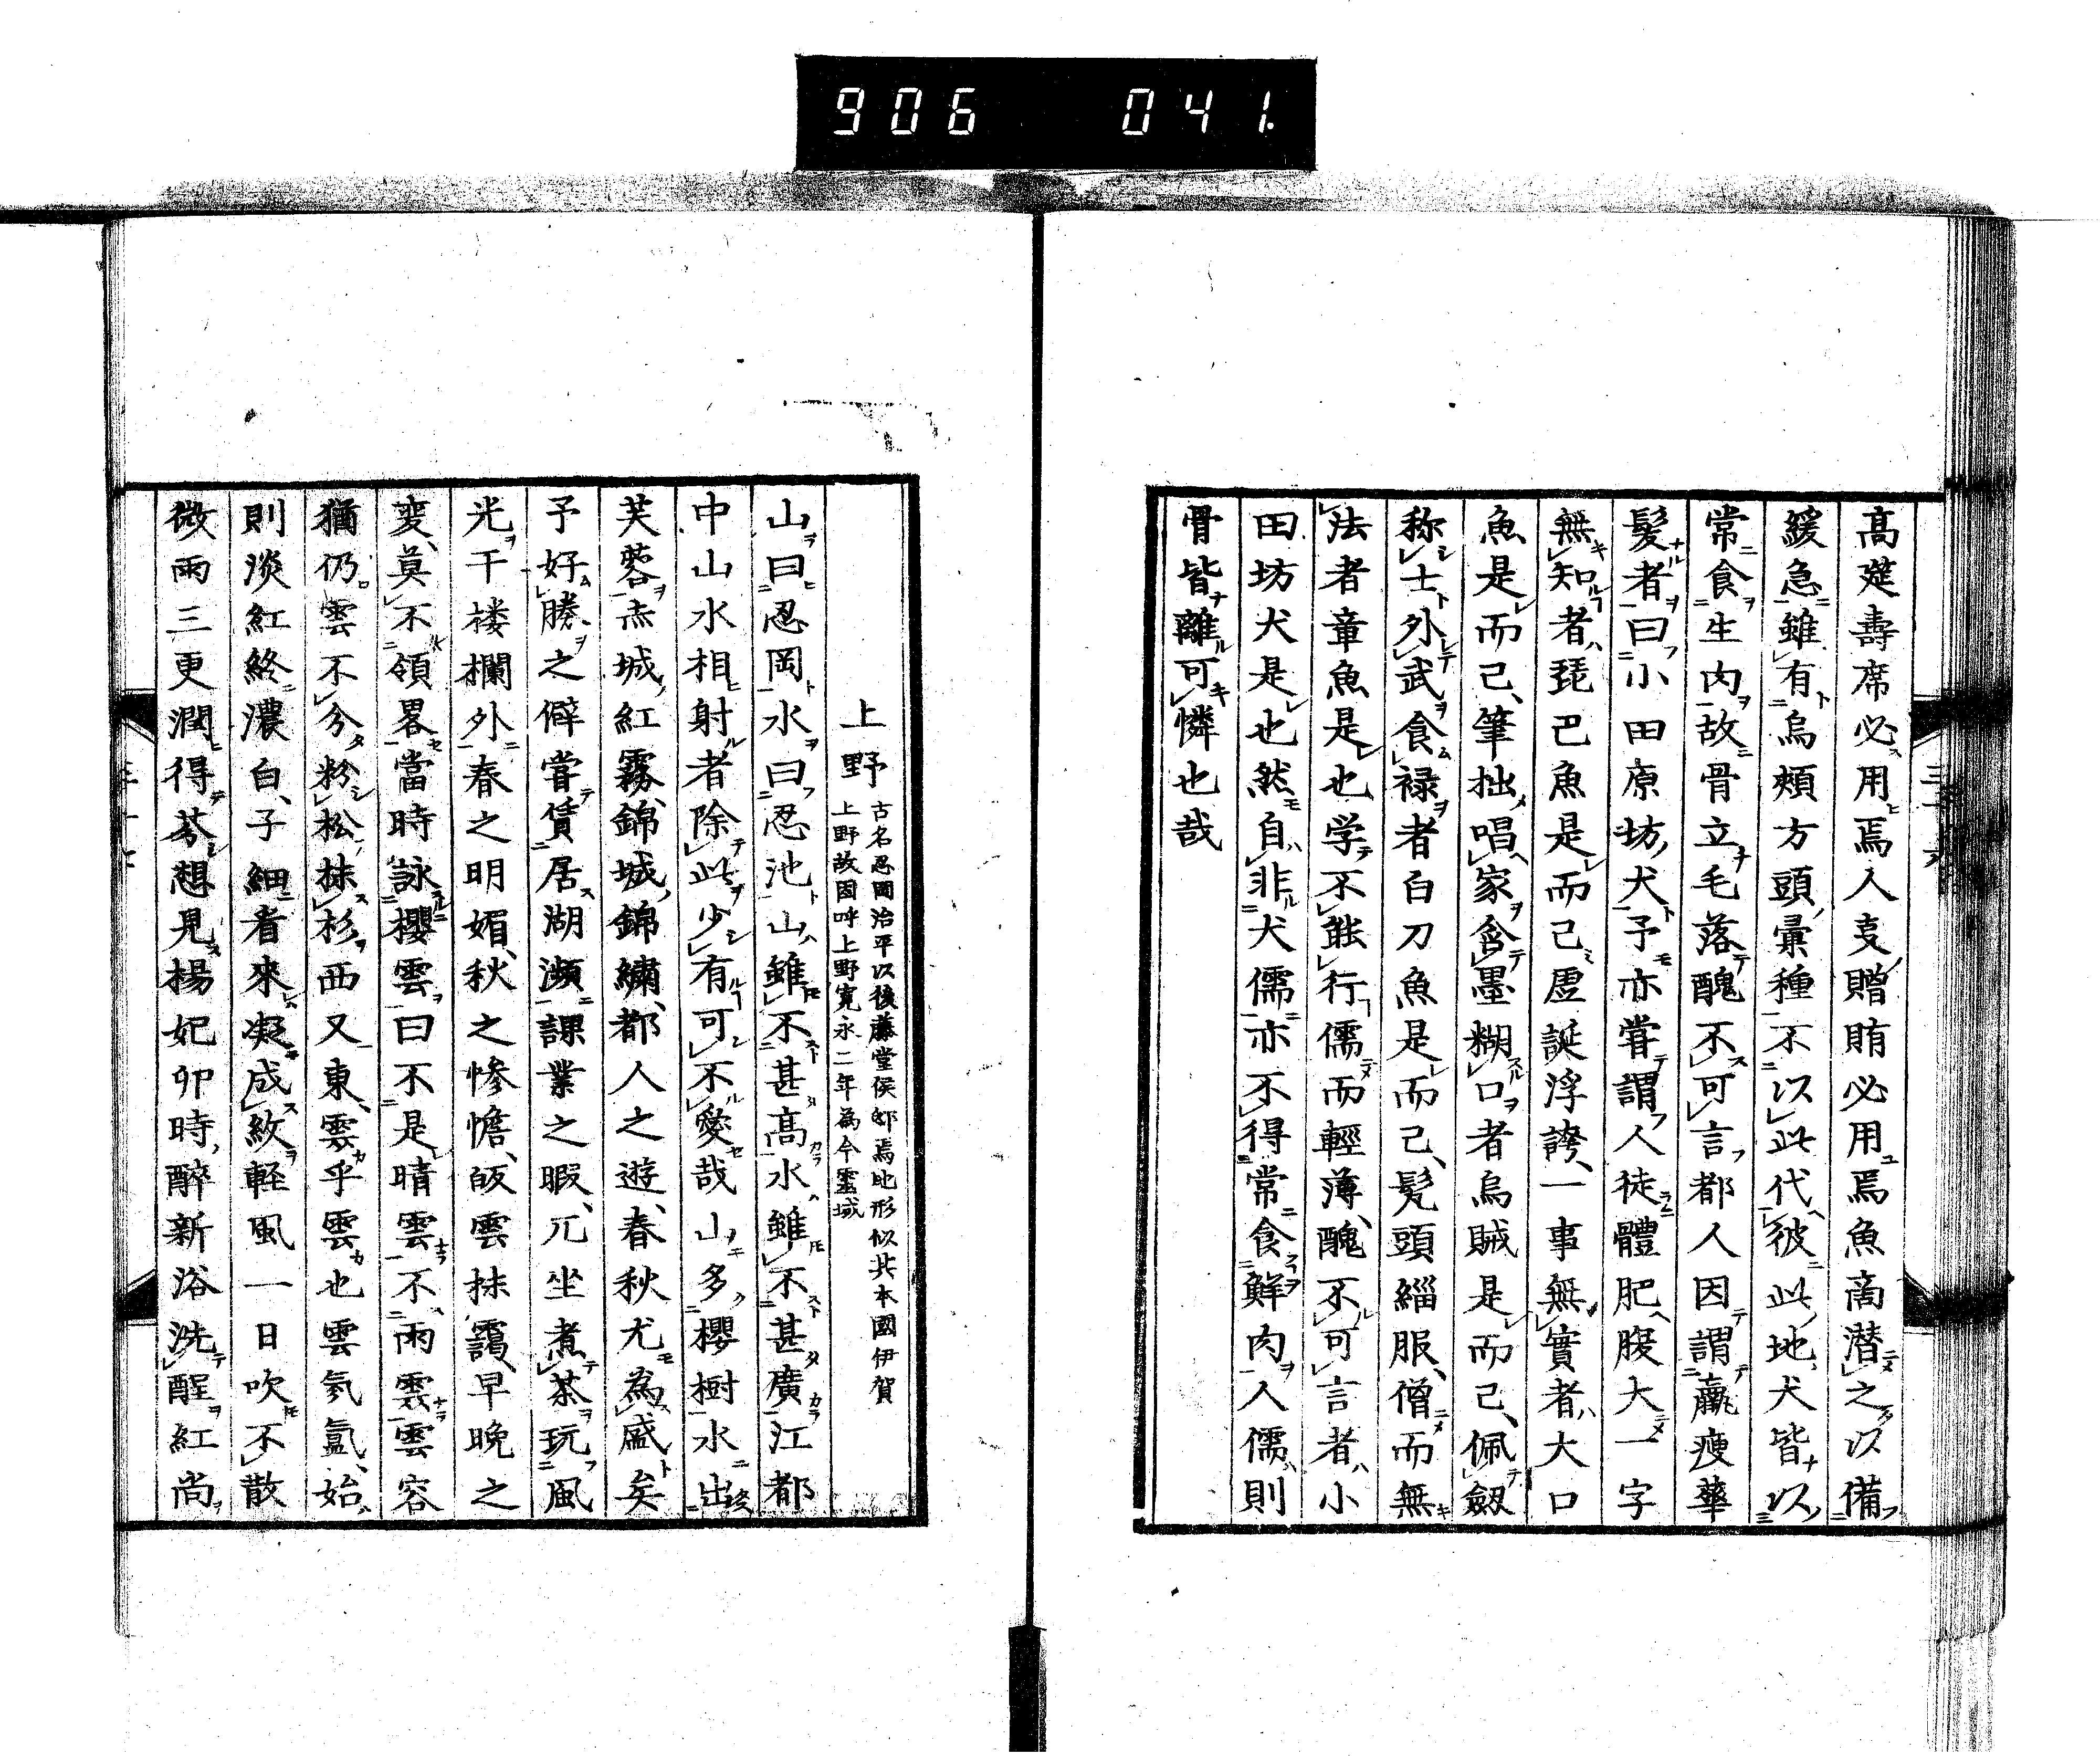 906 041.
高筵壽席必用焉入友贈賄必用焉魚商潜之以備
緩急雖有烏頬方頭彙種不以此代彼此地犬皆以
常食生肉故骨立毛落醜不可言都人因謂羸瘦華
髮者曰小田原坊犬予亦嘗謂人徒體肥腹大一字
無知者琵巴魚是而己虚誕浮誇一事無實者大口
魚是而己筆拙唱家含墨糊口者烏賊是而己佩劔
称士外武食禄者白刀魚是而己髠頭緇服僧而無
法者章魚是也学不能行儒而輕薄醜不可言者小
田坊犬是也然自非犬儒亦不得常食鮮肉人儒則
骨皆離可憐也哉
上野
古名忍岡治平以後藤堂侯邸焉地形似其本國伊賀
上野故因呼上野寛永二年為今靈域
山曰忍岡水曰忍池山雖不甚高水雖不甚廣江都
中山水相射者除此少有可不愛哉山多櫻樹水出
芙蓉赤城紅霧錦城錦繡都人之遊春秋尤為盛矣
予好勝之僻嘗賃居湖瀕課業之暇兀坐煮茶玩風
光干楼欄外春之明媚秋之惨憺皈雲抹靄早晩之
変莫不領畧當時詠櫻雲曰不是晴雲不雨雲雲容
猶仍雲不分粉松抹杉西又東雲乎雲也雲氣氳始
則淡紅終濃白子細看來凝成紋軽風一日吹不散
微雨三更潤得芬想見楊妃卯時醉新浴洗醒紅尚